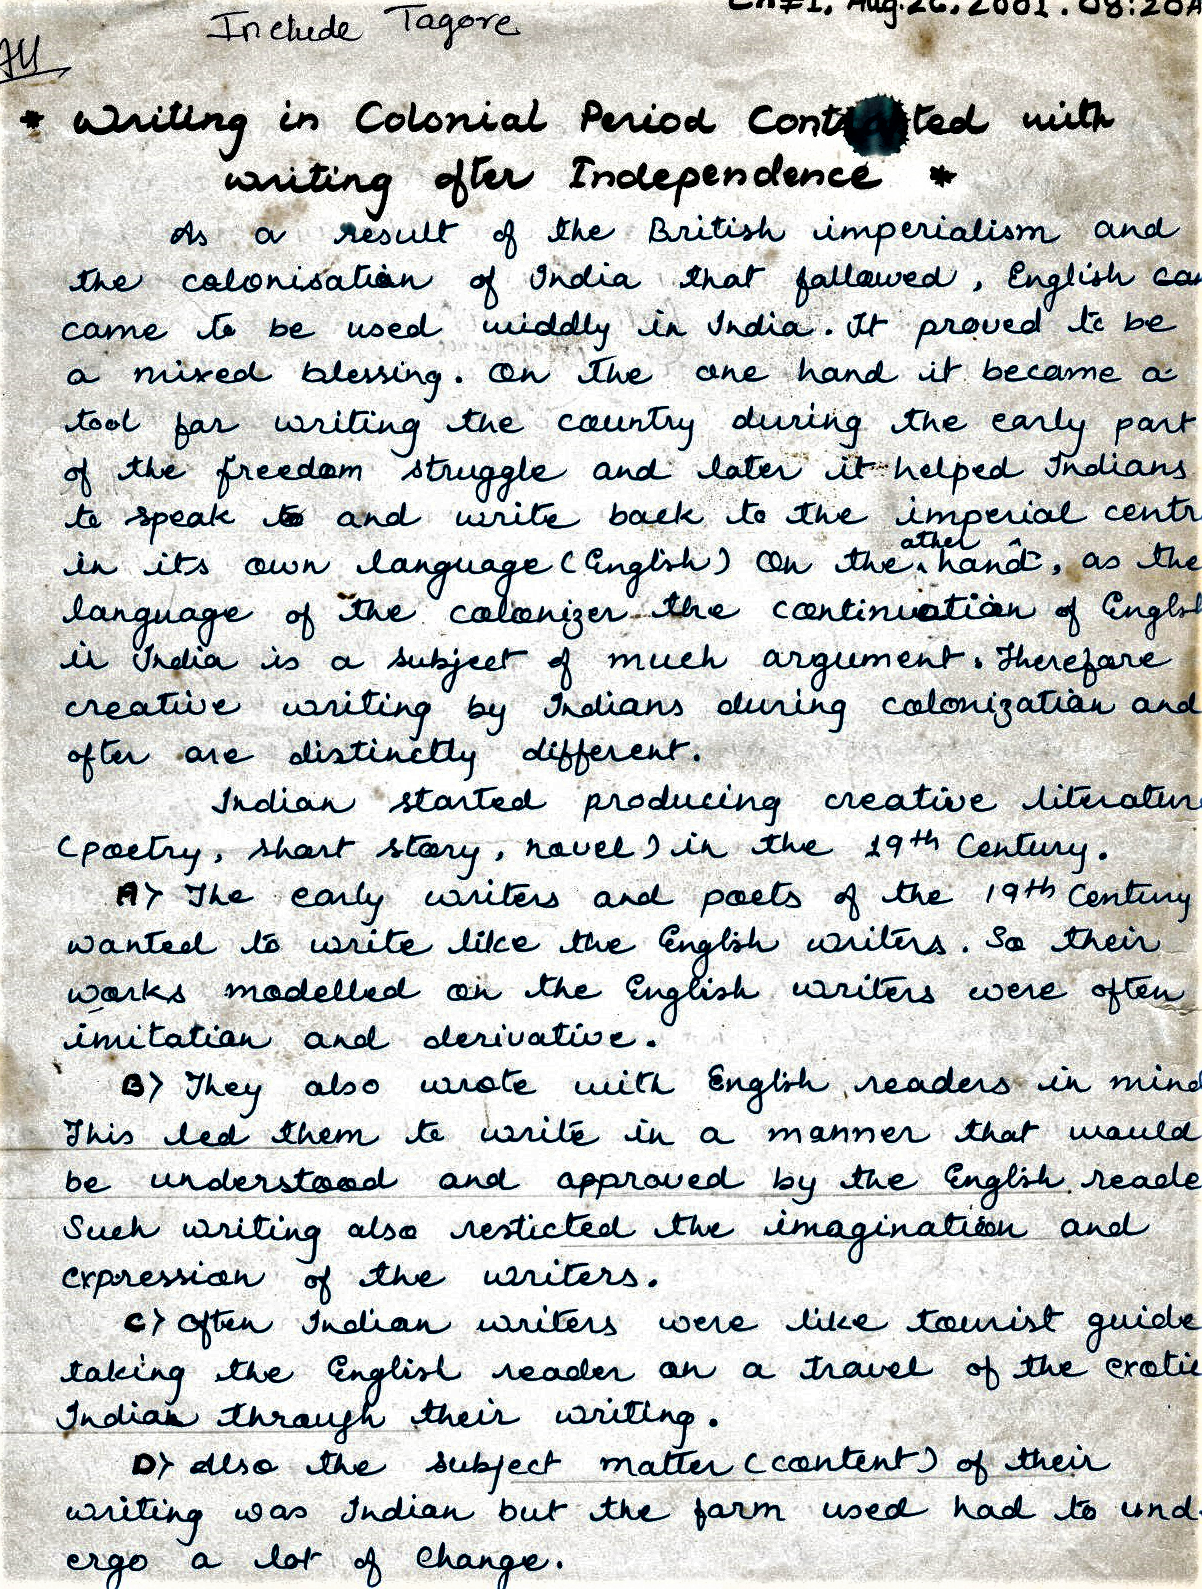 Include Tagore
Ch#1, Aug.26.2001. 08:20A
* Writing in Colonial Period Cont ted with
writing after Independence *
As a result of the British imperialism and
the colonisation of India that fallowed, English
came to be used widdly in India. It proved to be
a mixed blessing. On the one hand it became a
tool for writing the country during the early part
of the freedom struggle and later it helped Indians
to speak to and write back to the imperial centr
in its own language (English) On the other hand, as the
language of the colonizer the continuation of English
in India is a subject of much argument. Therefore
creative writing by Indians during colonization and
after are distinctly different.
Indian started producing creative literature
(poetry, short story, novel) in the 19th Century.
A> The early writers and poets of the 19th Century
wanted to write like the English writers. So their
works modelled on the English writers were often
imitation and derivative.
B> They also wrote with English readers in mind
This led them to write in a manner that would
be understood and approved by the English reade
Such writing also resticted the imagination and
expression of the writers.
C> Often Indian writers were like tourist guide
taking the English reader on a travel of the exotic
Indian through their writing.
D> Also the subject matter (content) of their
writing was Indian but the form used had to und-
ergo a lot of change.